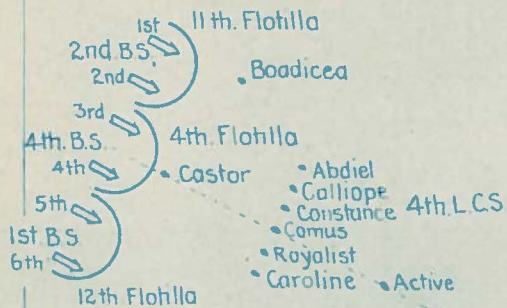 1st 11th. Flotilla
2nd B.S.
2nd
Boadicea
3rd
4th. B.S. 4th. Flotilla
4th
Castor Abdiel
Calliope
5th Constance 4th. L.C.S
Comus
1st B.S
Royalist
6th Caroline Active
12th Flotilla